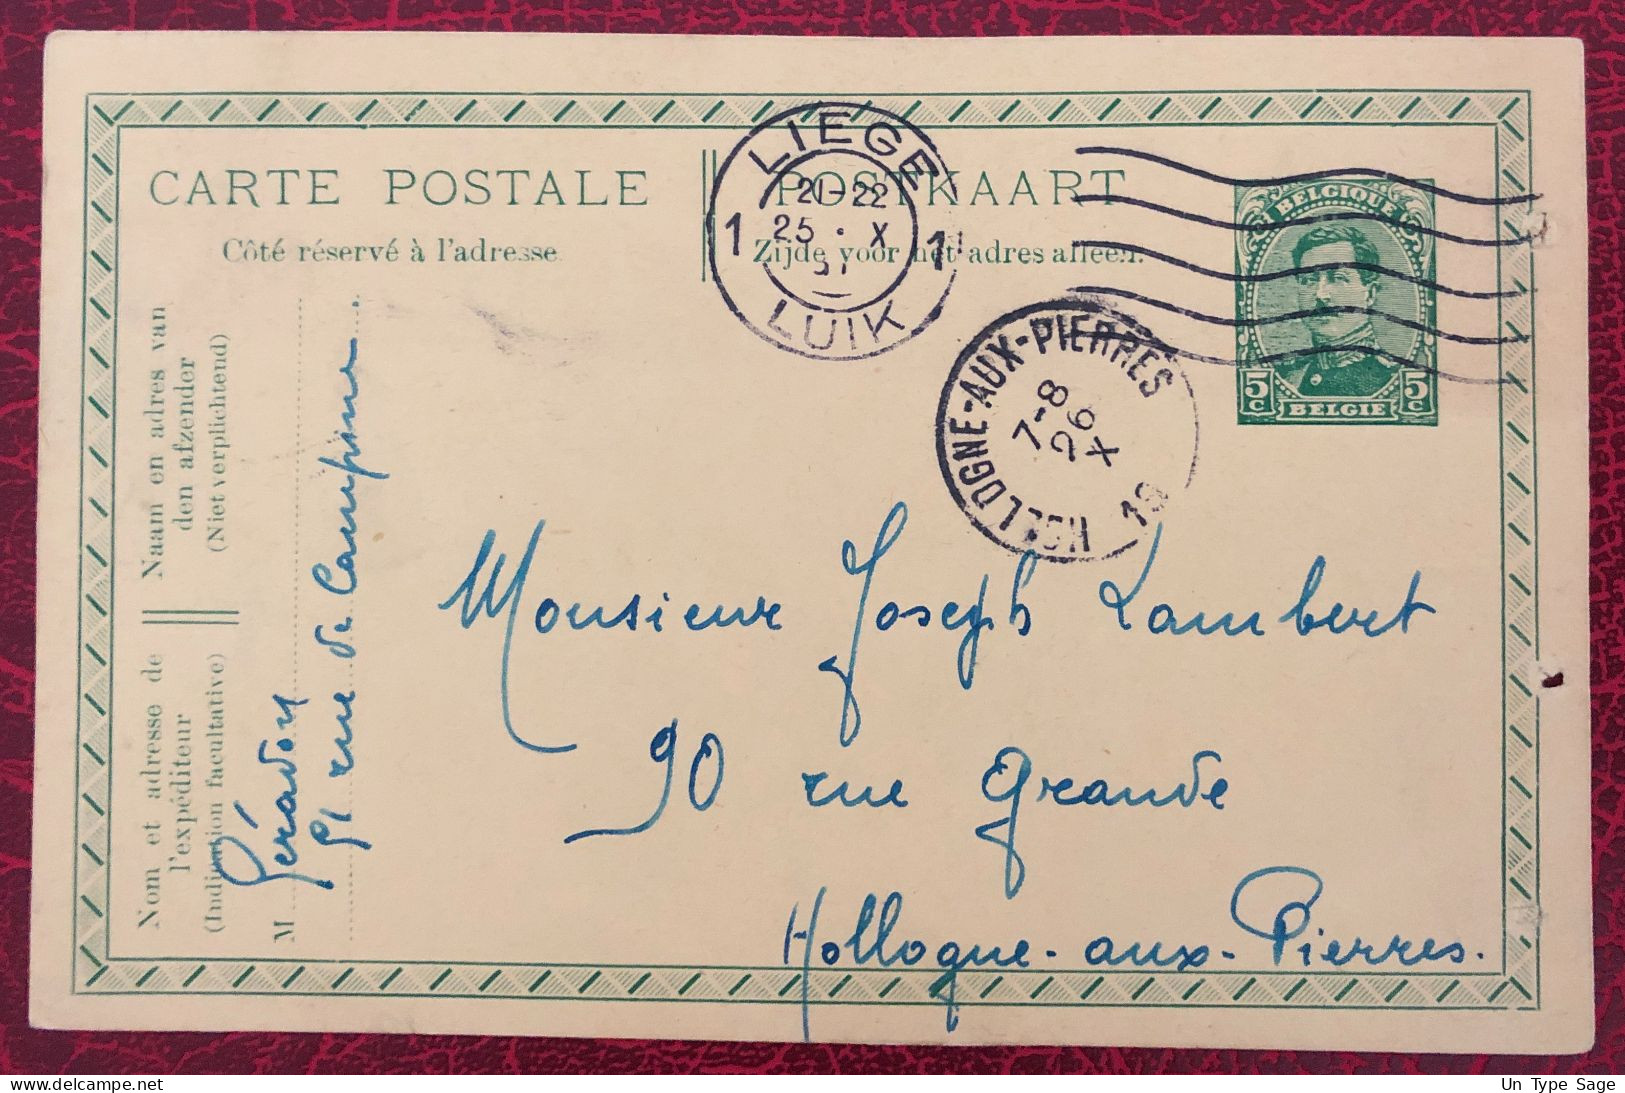 CARTE POSTALE
Côté réservé à l'adresse
POSTKAART
Zijde voor het adres alleen.
LIEGE
21-22
1 25 · X 1
LUIK
BELGIQUE
5c 5c
BELGIE
HOLLOGNE-AUX-PIERRES
7-8
26
X
19
Naam en adres van
den afzender
(Niet verplichtend)
Nom et adresse de
l'expéditeur
(Indication facultative)
M Géradon
91 rue de Campine
Monsieur Joseph Lambert
90 rue Grande
Hollogne-aux-Pierres.
Un Type Sage